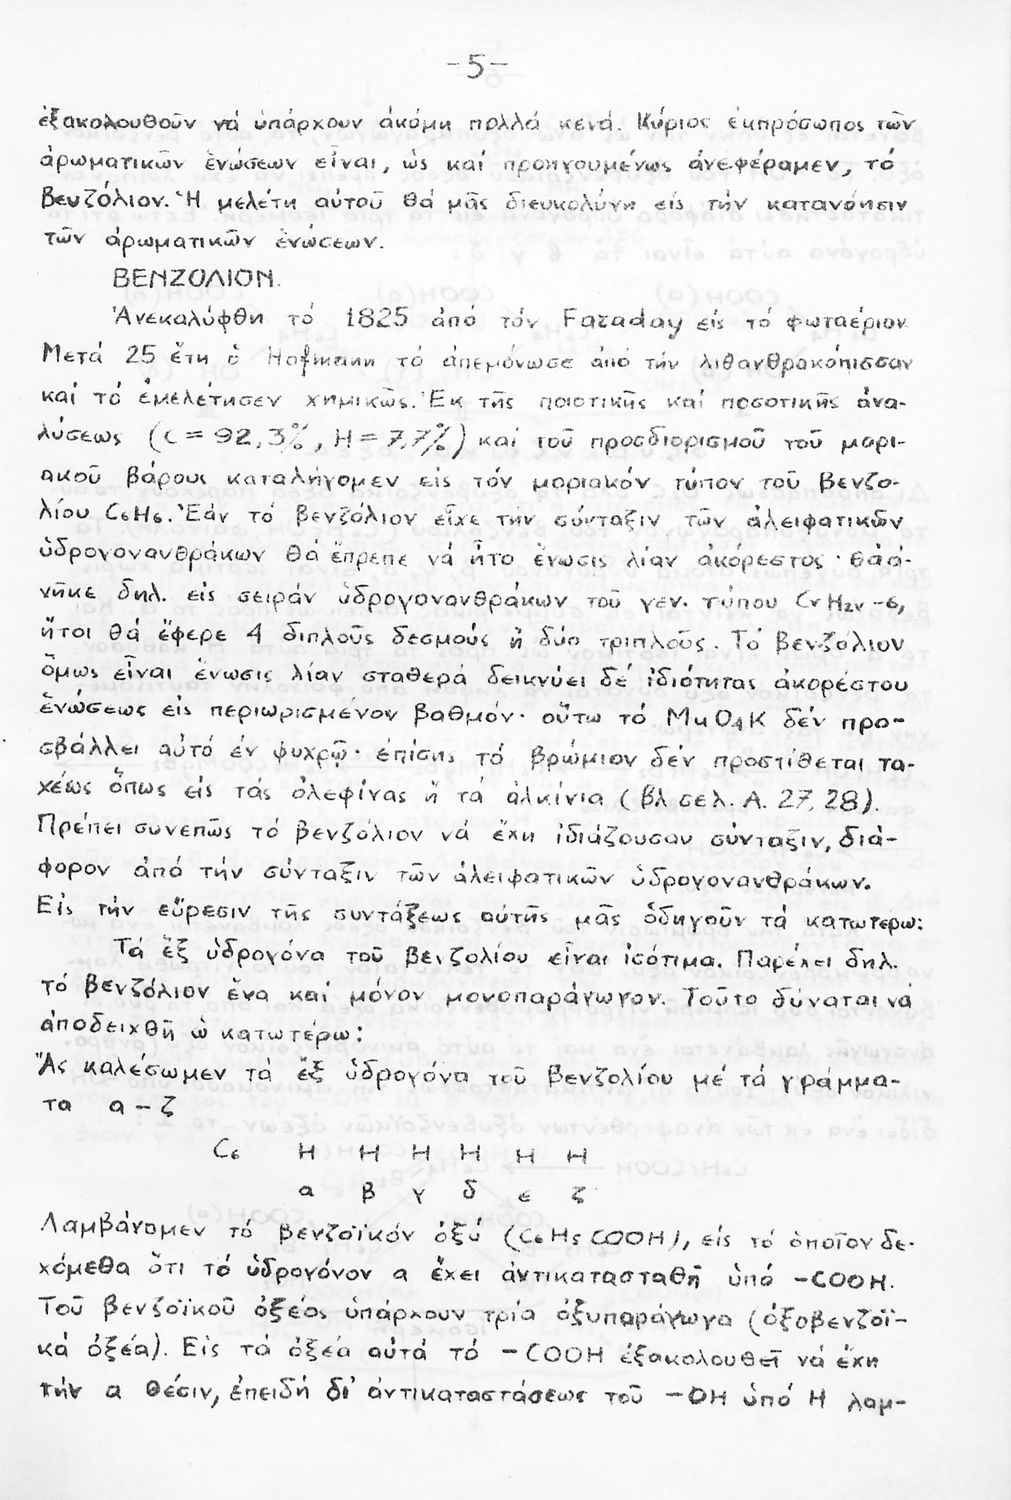 -5-
ἐξακολουθοῦν νά ὑπάρχουν ἀκόμη πολλά κενά. Κύριος ἐκπρόσωπος τῶν
ἀρωματικῶν ἑνώσεων εἶναι, ὡς καί προηγουμένως ἀνεφέραμεν, τό
βενζόλιον. Ἡ μελέτη αὐτοῦ θά μᾶς διευκολύνῃ εἰς τήν κατανόησιν
τῶν ἀρωματικῶν ἑνώσεων.
ΒΕΝΖΟΛΙΟΝ.
Ἀνεκαλύφθη τό 1825 ἀπό τόν Faraday εἰς τό φωταέριον
Μετά 25 ἔτη ὁ Hofmann τό ἀπεμόνωσε ἀπό τήν λιθανθρακόπισσαν
καί τό ἐμελέτησεν χημικῶς. Ἐκ τῆς ποιοτικῆς καί ποσοτικῆς ἀνα-
λύσεως (C = 92,3%, H = 7,7%) καί τοῦ προσδιορισμοῦ τοῦ μορι-
ακοῦ βάρους καταλήγομεν εἰς τόν μοριακόν τύπον τοῦ βενζο-
λίου C₆H₆. Ἐάν τό βενζόλιον εἶχε τήν σύνταξιν τῶν ἀλειφατικῶν
ὑδρογονανθράκων θά ἔπρεπε νά ἦτο ἕνωσις λίαν ἀκόρεστος· θά ἀ-
νῆκε δηλ. εἰς σειράν ὑδρογονανθράκων τοῦ γεν. τύπου CνH₂ν-6,
ἤτοι θά ἔφερε 4 διπλοῦς δεσμούς ἤ δύο τριπλοῦς. Τό βενζόλιον
ὅμως εἶναι ἕνωσις λίαν σταθερά δεικνύει δέ ἰδιότητας ἀκορέστου
ἑνώσεως εἰς περιωρισμένον βαθμόν· οὕτω τό MuO₄K δέν προ-
σβάλλει αὐτό ἐν ψυχρῷ· ἐπίσης τό βρώμιον δέν προστίθεται τα-
χέως ὅπως εἰς τάς ὀλεφίνας ἤ τά ἀλκίνια (βλ σελ. Α. 27, 28).
Πρέπει συνεπῶς τό βενζόλιον νά ἔχη ἰδιάζουσαν σύνταξιν, διά-
φορον ἀπό τήν σύνταξιν τῶν ἀλειφατικῶν ὑδρογονανθράκων.
Εἰς τήν εὕρεσιν τῆς συντάξεως αὐτῆς μᾶς ὁδηγοῦν τά κατωτέρω:
Τά ἕξ ὑδρογόνα τοῦ βενζολίου εἶναι ἰσότιμα. Παρέχει δηλ.
τό βενζόλιον ἕνα καί μόνον μονοπαράγωγον. Τοῦτο δύναται νά
ἀποδειχθῆ ὡ κατωτέρω:
Ἄς καλέσωμεν τά ἕξ ὑδρογόνα τοῦ βενζολίου μέ τά γράμμα-
τα α - ζ
C₆ H H H H H H
α β γ δ ε ζ
Λαμβάνομεν τό βενζοϊκόν ὀξύ (C₆H₅COOH), εἰς τό ὁποῖον δε-
χόμεθα ὅτι τό ὑδρογόνον α ἔχει ἀντικατασταθῆ ὑπό -COOH.
Τοῦ βενζοϊκοῦ ὀξέος ὑπάρχουν τρία ὀξυπαράγωγα (ὀξοβενζοϊ-
κά ὀξέα). Εἰς τά ὀξέα αὐτά τό -COOH ἐξακολουθεῖ νά ἔχη
τήν α θέσιν, ἐπειδή δι' ἀντικαταστάσεως τοῦ -OH ὑπό H λαμ-